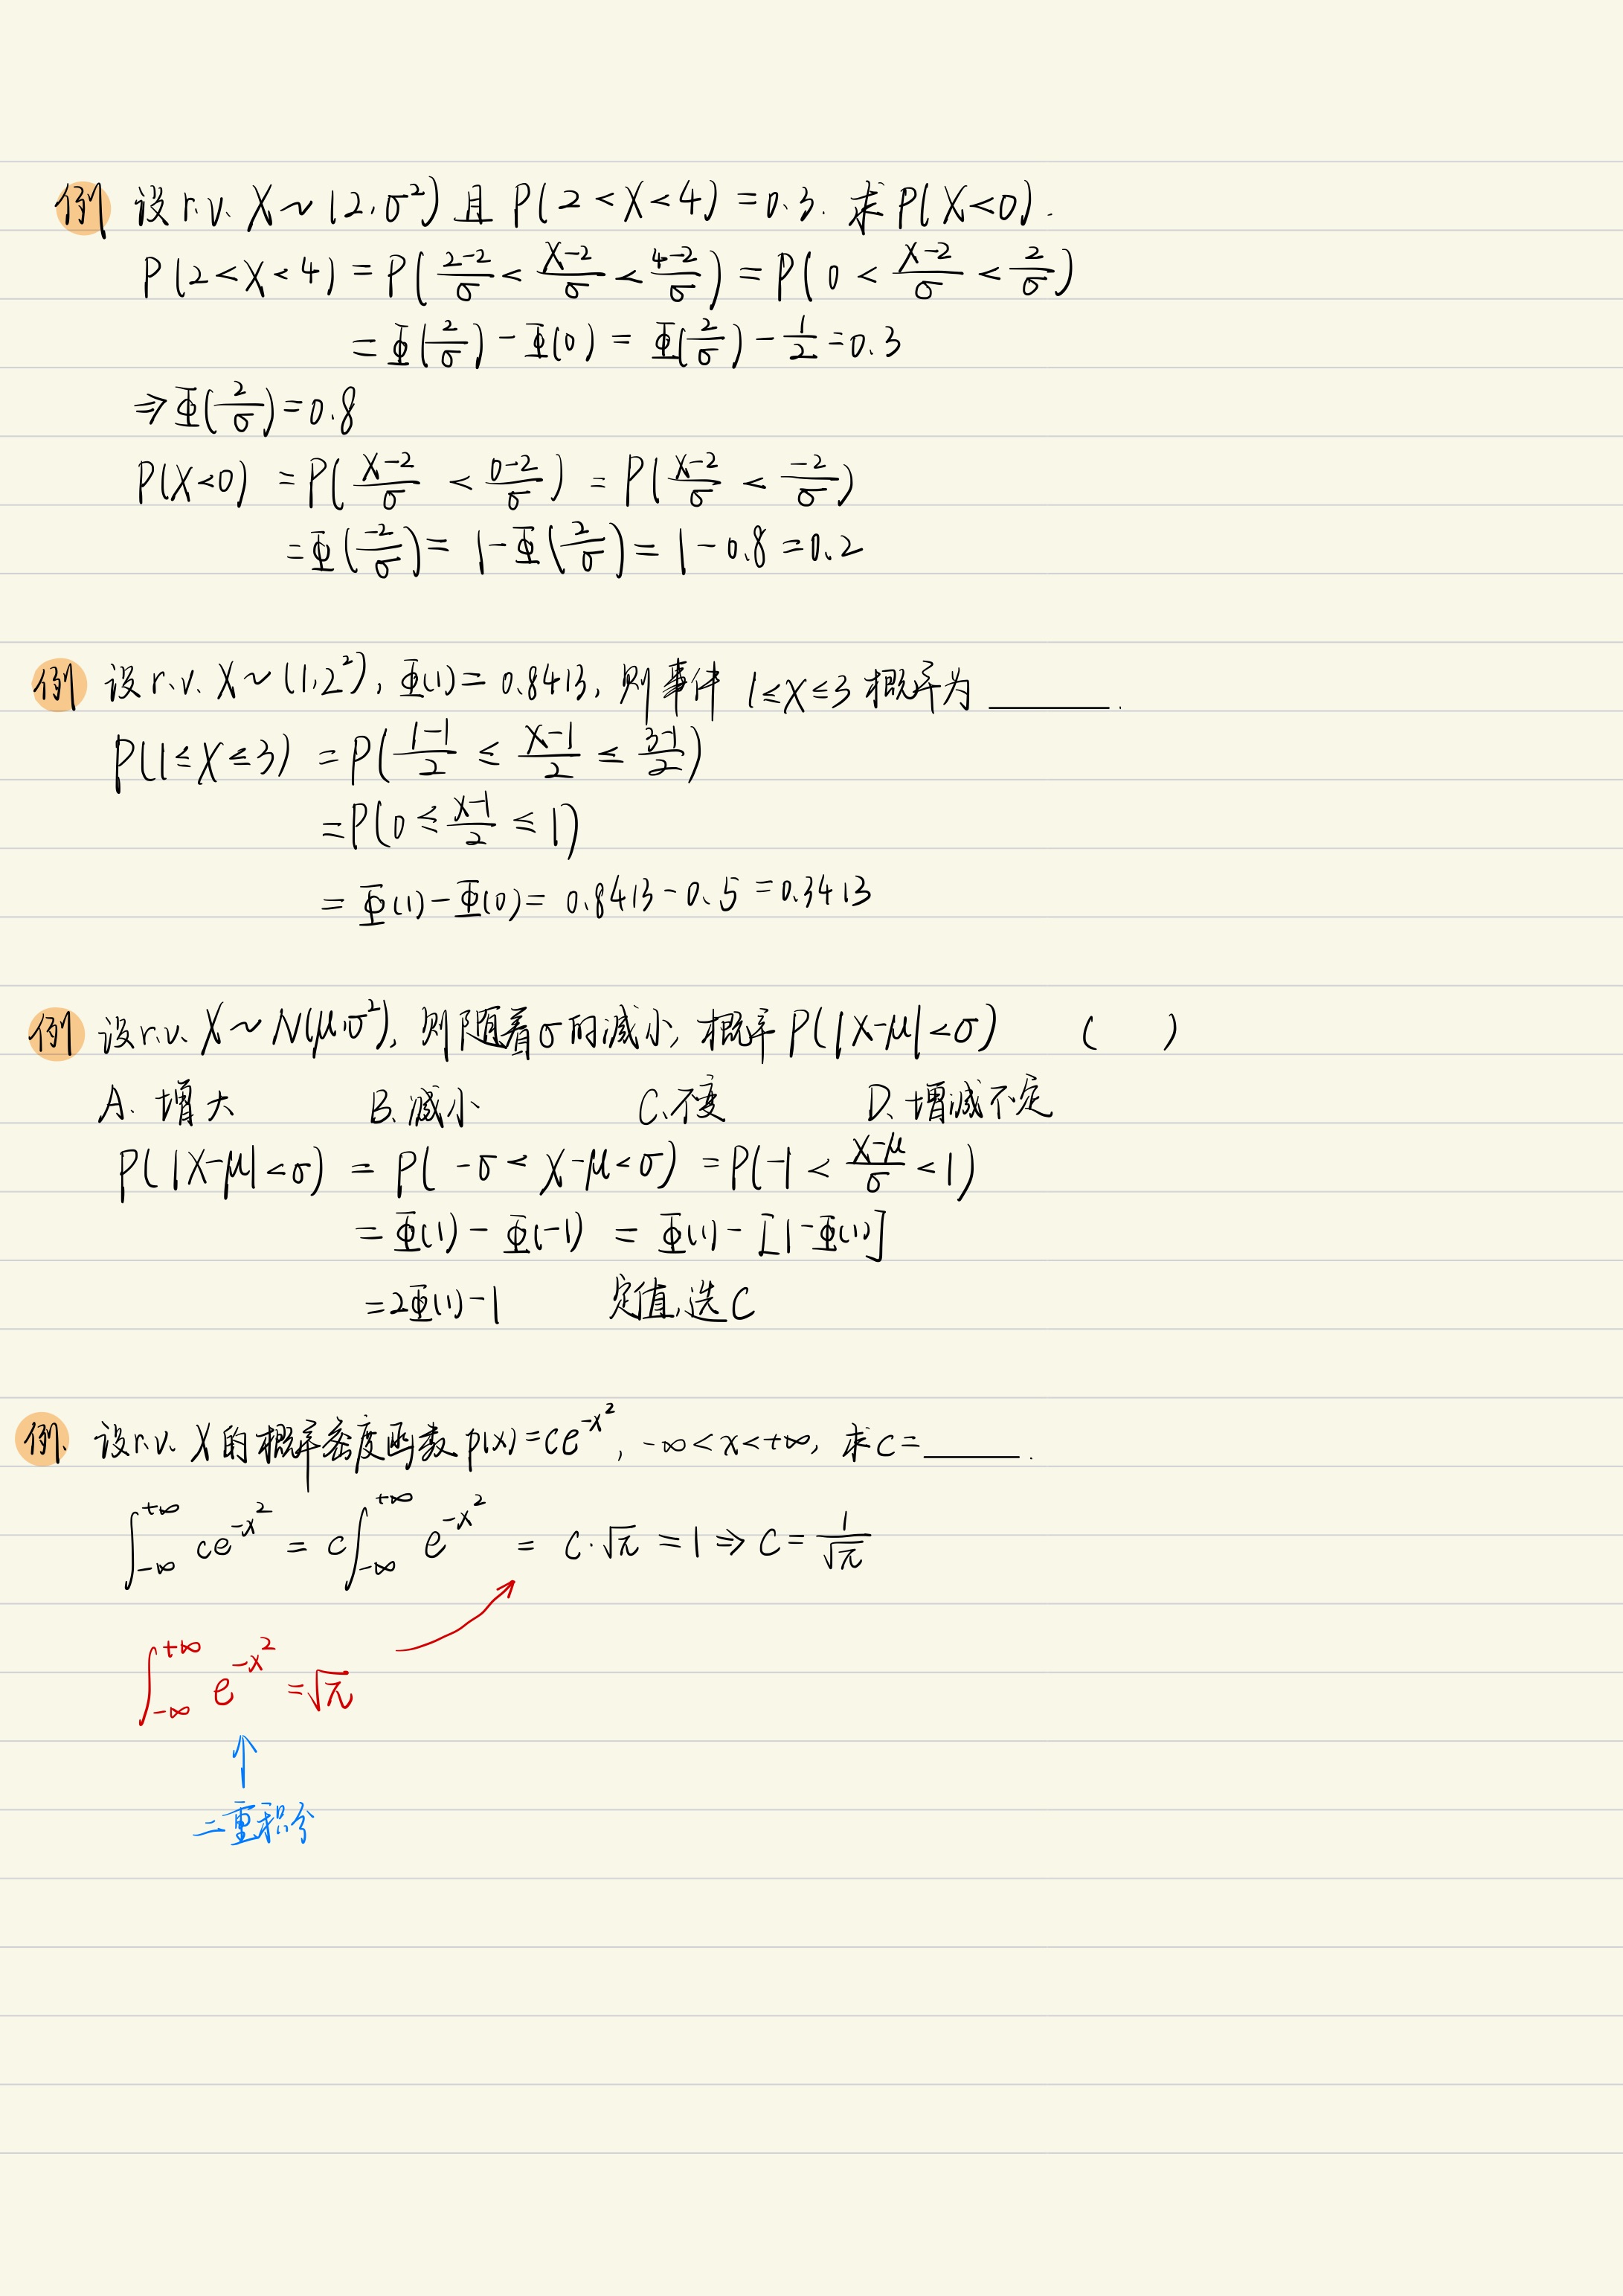 例 设 r.v. X ~ (2, σ²) 且 P(2 < X < 4) = 0.3. 求 P(X < 0).
P(2 < X < 4) = P(\frac{2-2}{σ} < \frac{X-2}{σ} < \frac{4-2}{σ}) = P(0 < \frac{X-2}{σ} < \frac{2}{σ})
= Φ(\frac{2}{σ}) - Φ(0) = Φ(\frac{2}{σ}) - \frac{1}{2} = 0.3
⇒ Φ(\frac{2}{σ}) = 0.8
P(X < 0) = P(\frac{X-2}{σ} < \frac{0-2}{σ}) = P(\frac{X-2}{σ} < \frac{-2}{σ})
= Φ(\frac{-2}{σ}) = 1 - Φ(\frac{2}{σ}) = 1 - 0.8 = 0.2
例 设 r.v. X ~ (1, 2²), Φ(1) = 0.8413, 则事件 1 ≤ X ≤ 3 概率为 ______.
P(1 ≤ X ≤ 3) = P(\frac{1-1}{2} ≤ \frac{X-1}{2} ≤ \frac{3-1}{2})
= P(0 ≤ \frac{X-1}{2} ≤ 1)
= Φ(1) - Φ(0) = 0.8413 - 0.5 = 0.3413
例 设 r.v. X ~ N(μ, σ²), 则随着σ的减小, 概率 P(|X-μ| < σ) ( )
A. 增大 B. 减小 C. 不变 D. 增减不定
P(|X-μ| < σ) = P(-σ < X-μ < σ) = P(-1 < \frac{X-μ}{σ} < 1)
= Φ(1) - Φ(-1) = Φ(1) - [1 - Φ(1)]
= 2Φ(1) - 1 定值, 选 C
例. 设 r.v. X 的概率密度函数 p(x) = ce^{-x²}, -∞ < x < +∞, 求 c = ______.
∫_{-∞}^{+∞} ce^{-x²} = c∫_{-∞}^{+∞} e^{-x²} = c·√π = 1 ⇒ c = \frac{1}{√π}
∫_{-∞}^{+∞} e^{-x²} = √π
↑
二重积分